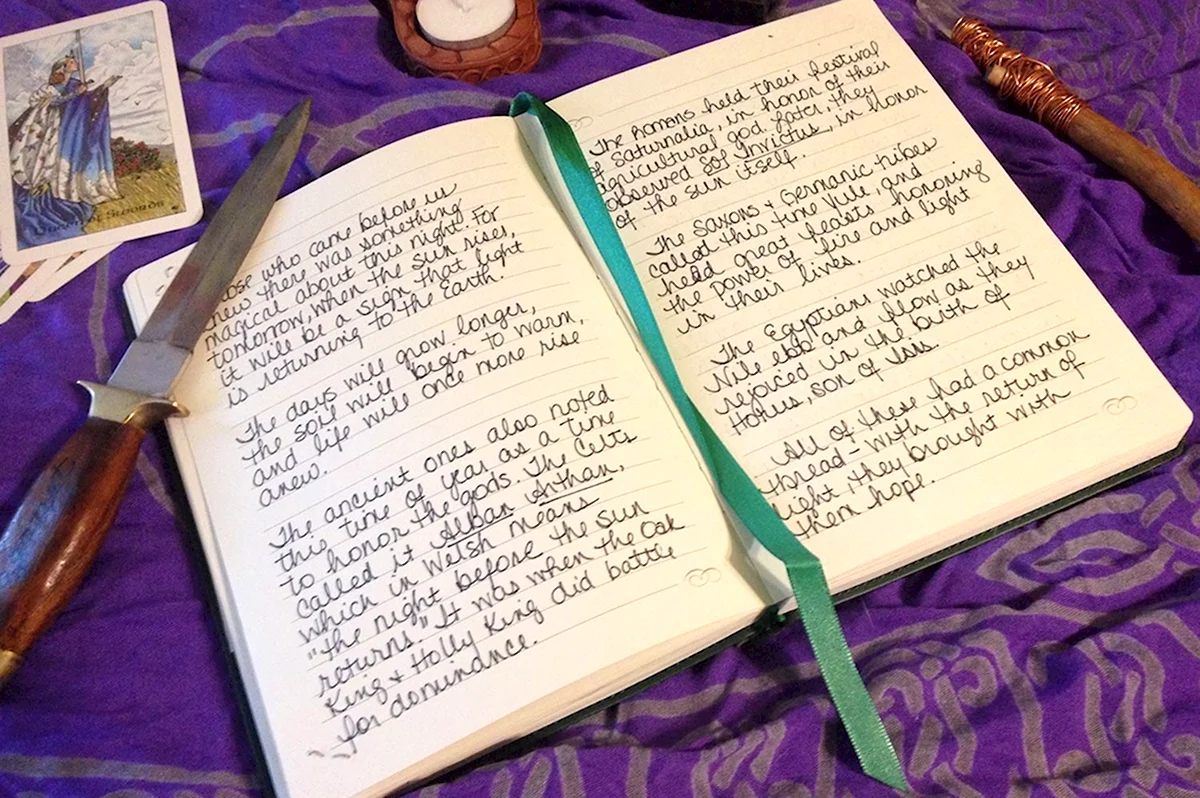 Queen of Swords
those who came before us
knew there was something
magical about this night. For
tomorrow, when the sun rises,
it will be a sign that light
is returning to the Earth.
The days will grow longer,
the soil will begin to warm,
and life will once more rise
anew.
The ancient ones also noted
this time of year as a time
to honor the gods. The Celts
called it Alban Arthan,
which in Welsh means
"the night before the Sun
returns." It was when the Oak
King & Holly King did battle
for dominance.
The Romans held their festival
of Saturnalia, in honor of their
agricultural god. Later, they
observed Sol Invictus, in honor
of the sun itself.
The Saxons & Germanic tribes
called this time Yule, and
held great feasts honoring
the power of fire and light
in their lives.
The Egyptians watched the
Nile ebb and flow as they
rejoiced in the birth of
Horus, son of Isis.
All of these had a common
thread - with the return of
light, they brought with
them hope.